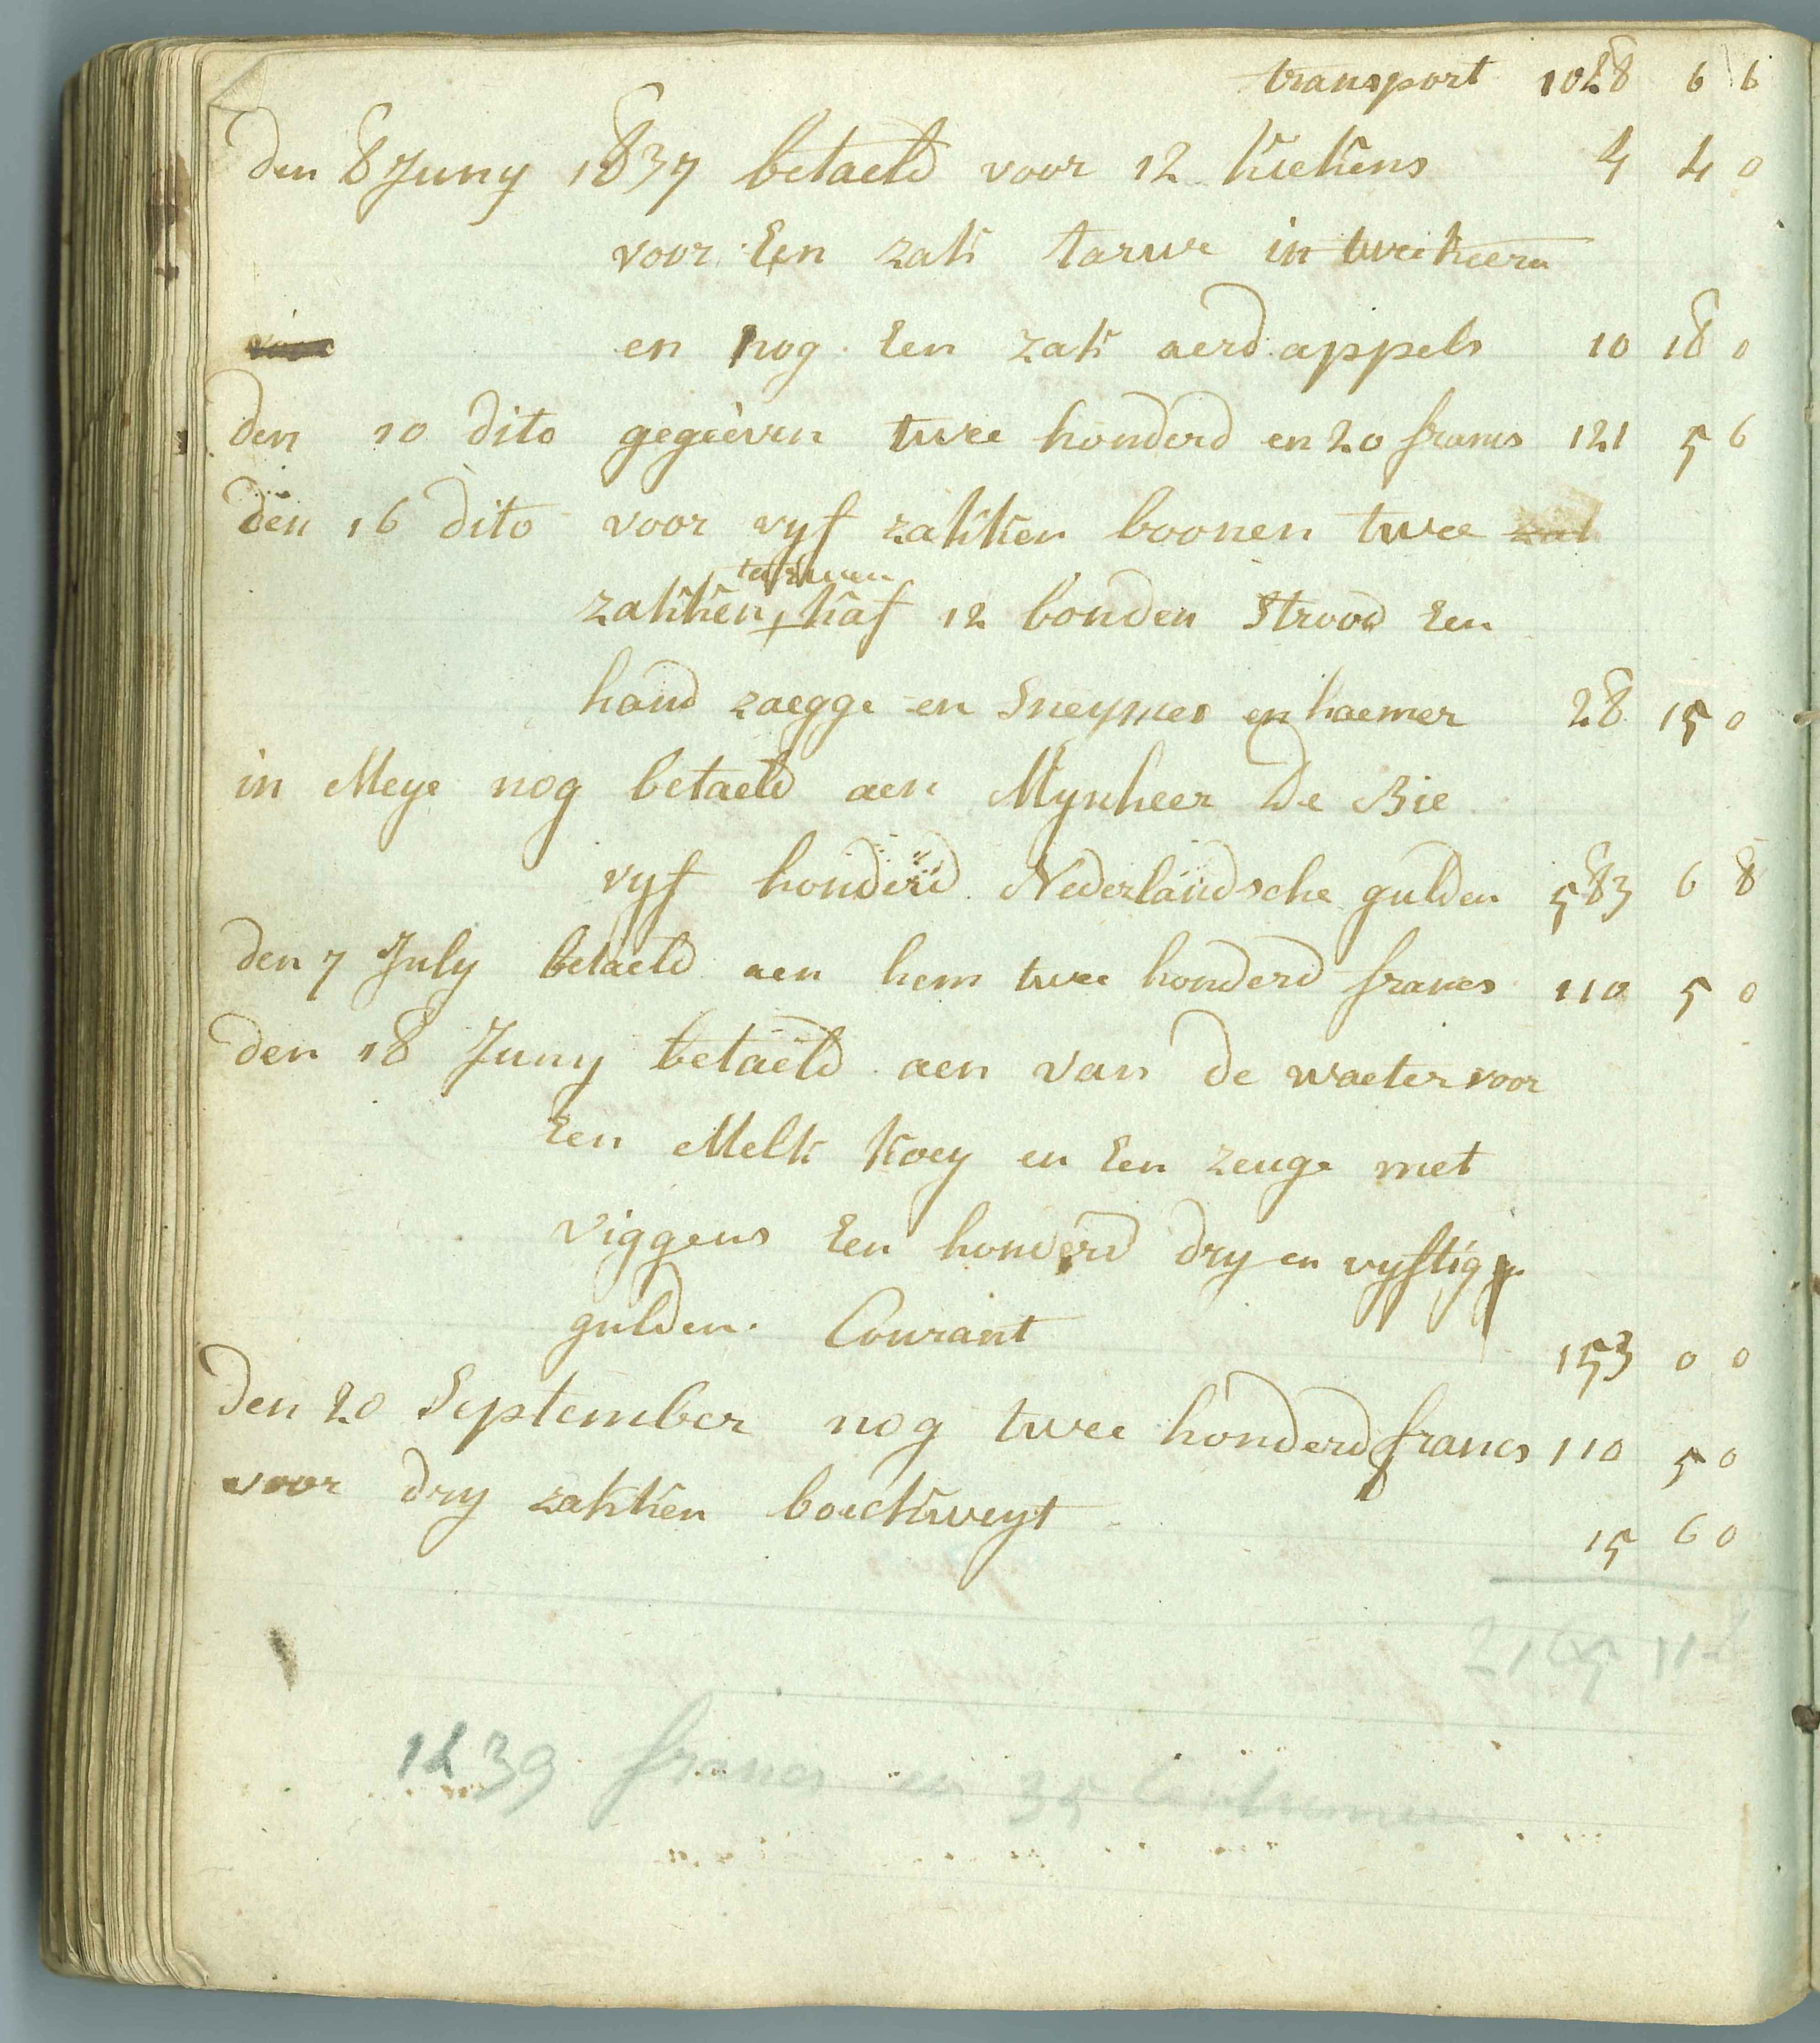 transport 1028 6 6
den 8 Juny 1837 betaeld voor 12 kiekens 4 4 0
voor Een zak tarwe in twee keeren
voor en nog Een zak aerd appels 10 18 0
den 10 dito gegeèven twee honderd en 20 francs 121 5 6
den 16 dito voor vyf zakken boonen twee zak
tarwen
zakken, kaf 12 bonden Strood Een
hand zaegge en Sneymes en haemer 28 15 0
in Meye nog betaeld aen Mynheer De Bie
vyf honderd Nederlandsche gulden 583 6 8
den 7 July betaeld aen hem twee honderd francs 110 5 0
den 18 Juny betaeld aen van de waeter voor
Een Melk koey en Een zeuge met
viggens Een honderd dry en vyftig
gulden Courant 153 0 0
den 20 September nog twee honderd francs 110 5 0
voor dry zakken boeckweyt 15 6 0
1239 francs en 35 Centiemen